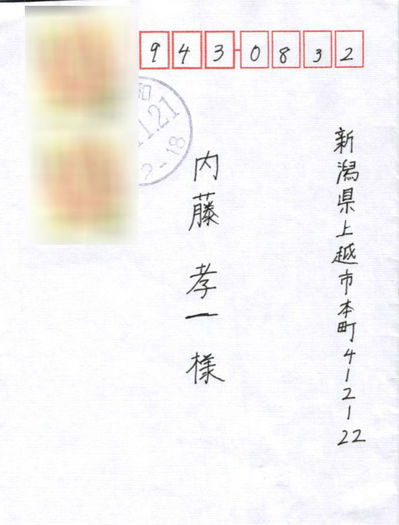 943-0832
和
.11.21
2-18
新潟県上越市本町4-2-22
内藤孝一様